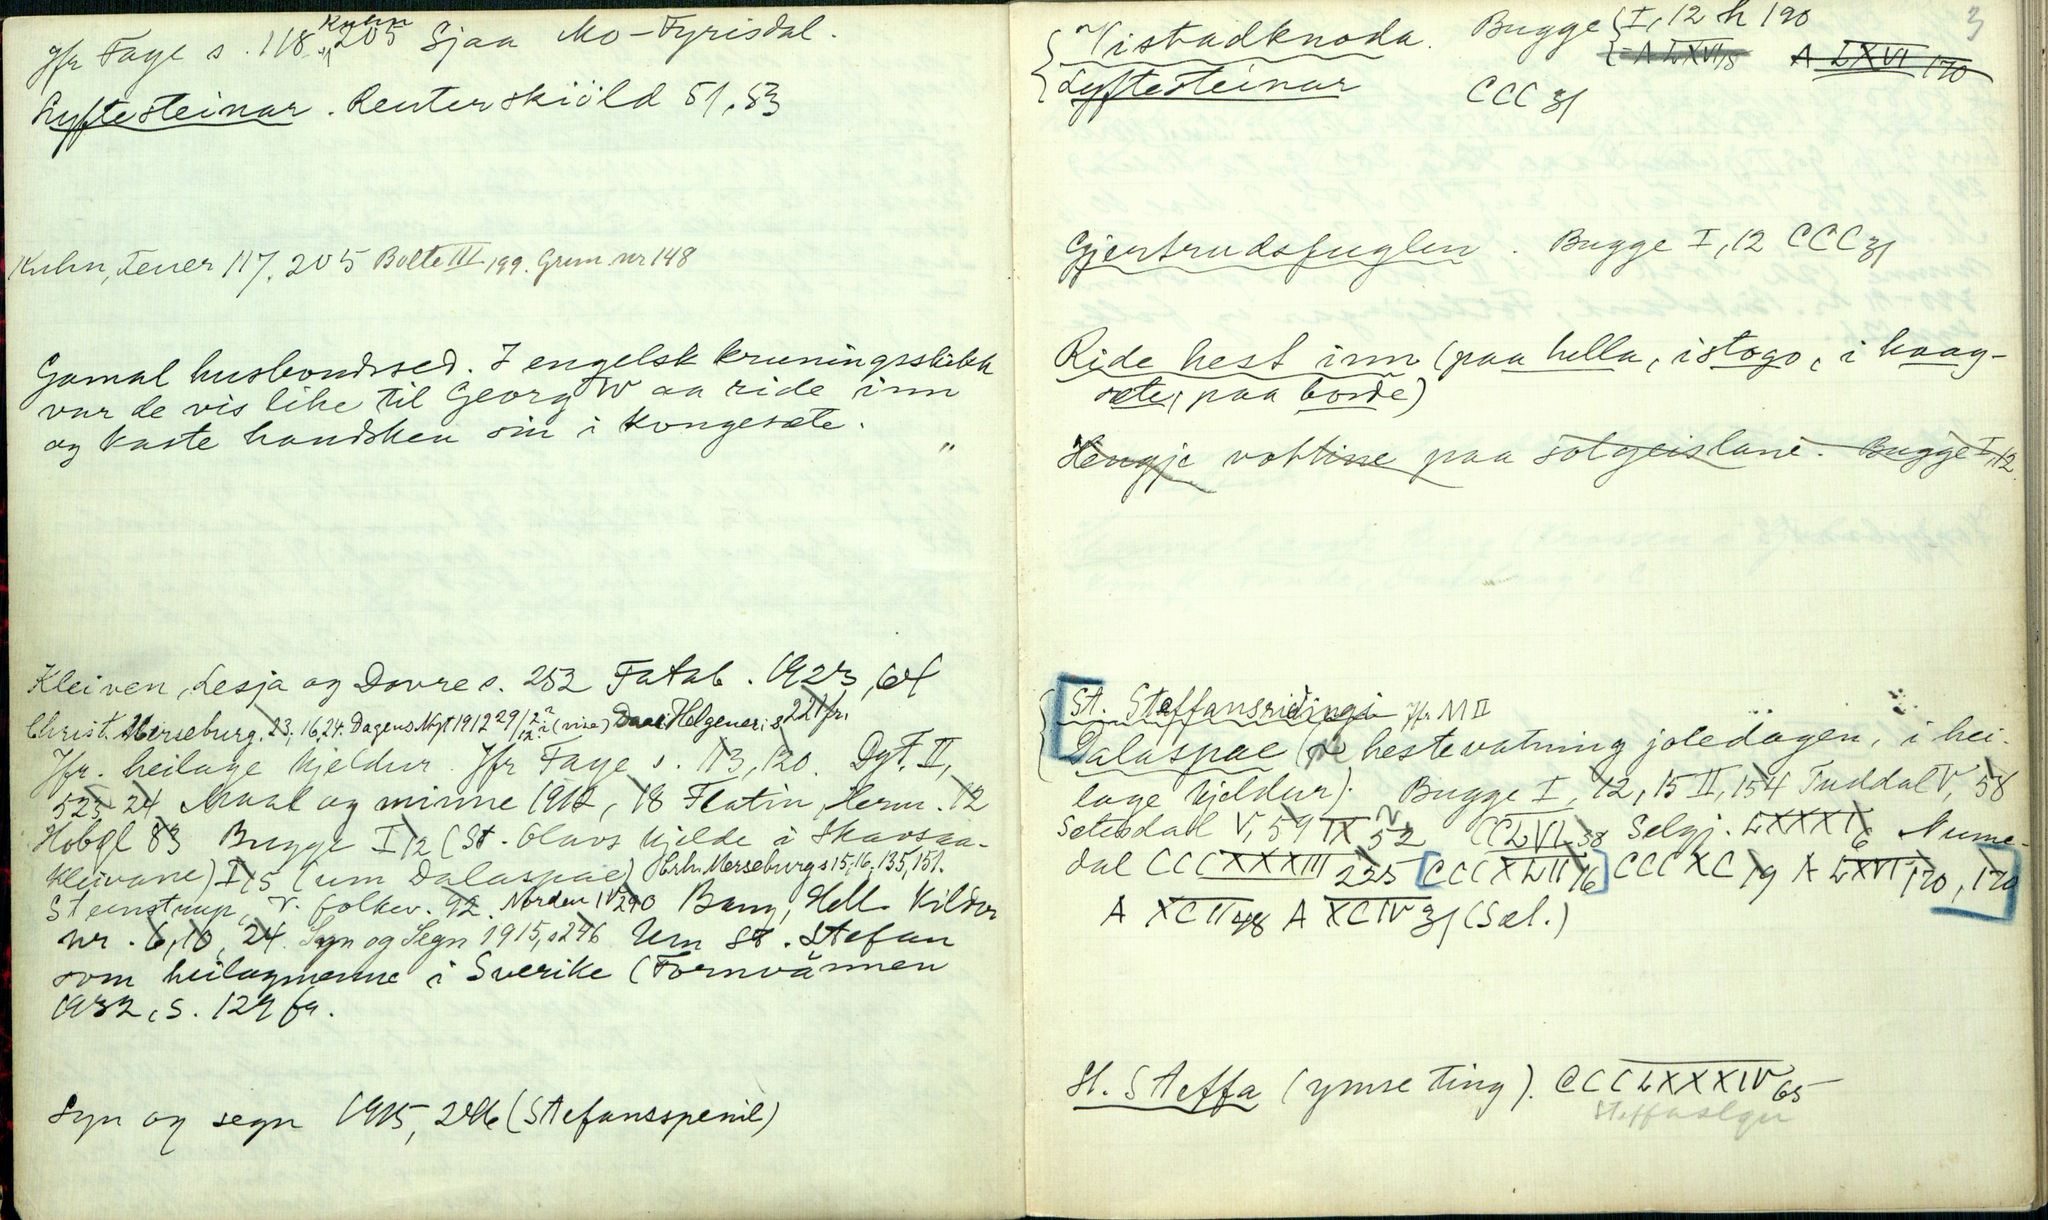 Kuhn
Jfr Faye s. 118, 205 Sjaa Mo-Fyrisdal.
Lyftesteinar. Reuterskiöld 51, 53
Kuhn, Feuer 117, 205 Bolte III 199. Grim. nr 148
Gamal husbondssed. I engelsk kruningsskikk
var de vis like til Georg IV aa ride inn
og kaste handsken sin i kongesæte. "
Kleiven, Lesja og Dovre s. 252 Fatab. 1923, 64
Christ. Merseburg. 23, 16, 24. Dagens Nyt 1912 29/12 (vise) Helgener, s 221 fr.
Jfr. heilage kjeldur. Jfr Faye s. 113, 120. DgF. II,
523, 24 Maal og minne 1912, 18 Flatin, 12
83 Bugge I 12 (St. Olavs kjelde i Skavsaa-
kleivane) I 15 (um Dalaspae) Chr. Merseburg s 15, 16, 135, 151.
Steenstrup, V. folkev. 92. Norden IV 290 Bang, Hell. Kildor
nr. 6, 10, 24. Syn og Segn 1915, s 246 Um St. Stefan
som heilagmenne i Sverike (Fornvännen
1932, s. 129 fg.
Syn og segn 1915, 246 (Stefansspenil)
3
Vistadknoda. Bugge I, 12 h 190
= A LXVI 8 A LXVI 170
Lyftesteinar CCC 31
Gjertrudsfuglen. Bugge I, 12 CCC 31
Ride hest inn (paa hella, i stogo, i haag-
sæte, paa borde)
Hengje vottine paa solgeislane. Bugge I, 12.
St. Staffansridingi Jfr M II
Dalaspae (hestevatning joledagen, i hei-
lage kjeldur). Bugge I, 12, 15 II, 154 Tuddal V, 58
Setesdal V, 59 IX 52 CCLVI 38 Selgj. LXXXI 6 Nume-
dal CCCXXXIII 225 CCCXLII 16 CCCXC 19 A LXVI 170, 170
A XCII 48 A XCIV 31 (Sæl.)
St. Steffa (ymse ting). CCCLXXXIV 65